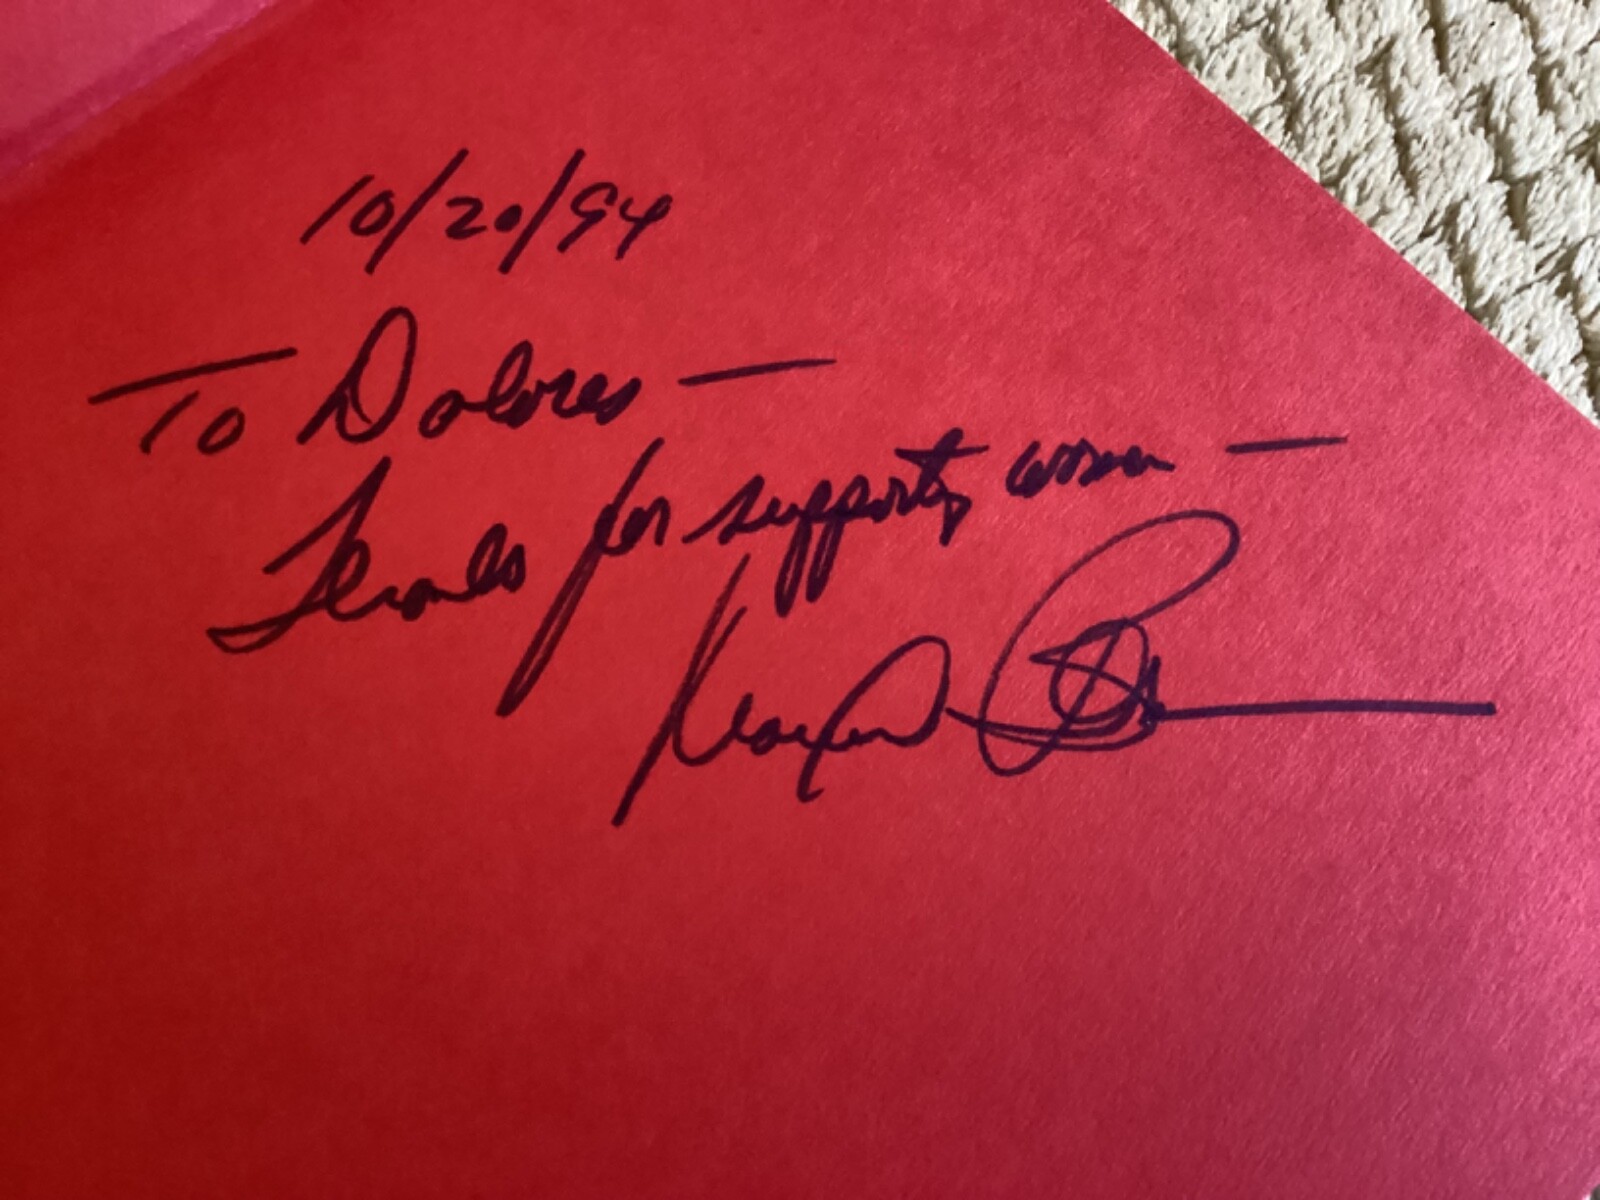 10/20/94
To Dolores —
Thanks for supporting women —